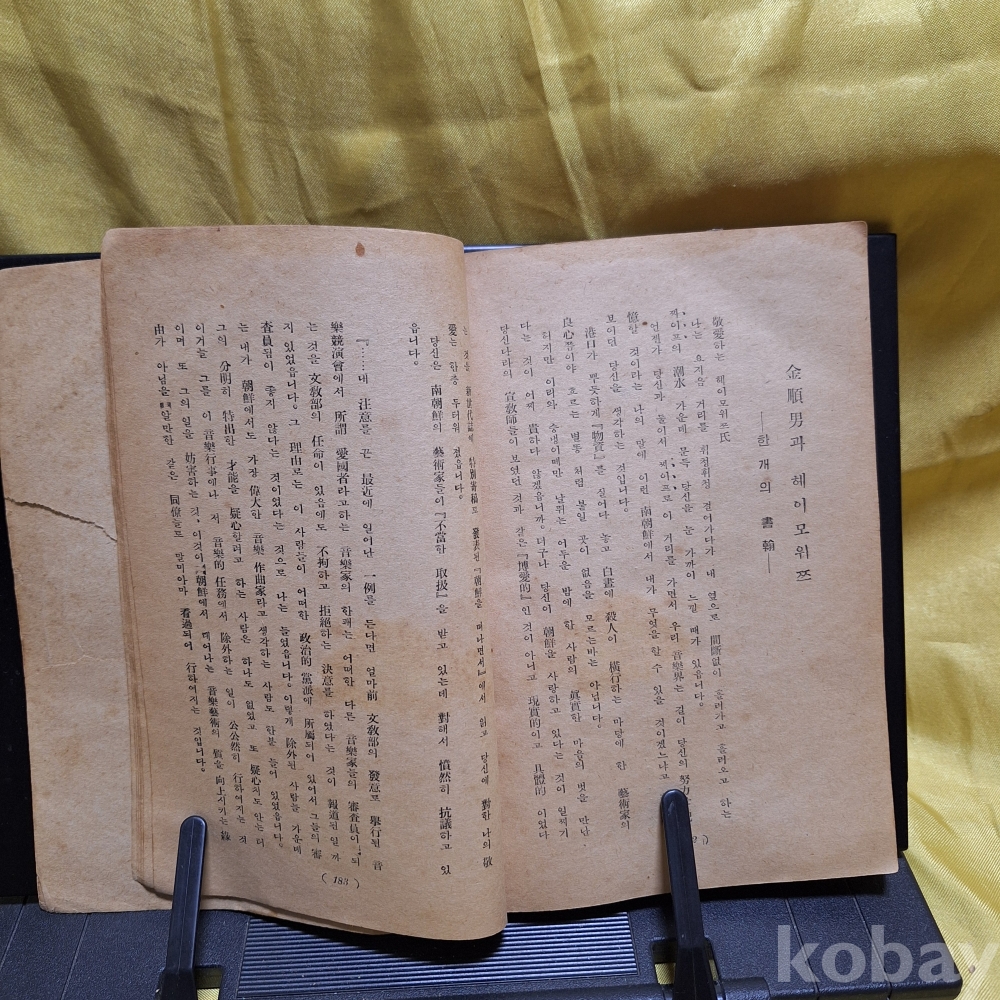 金順男과 헤이모위쯔
──한 개의 書翰──
敬愛하는 헤이모위쯔氏
나는 요지음 거리를 휘청휘청 걸어가다가 내 옆으로 間斷없이 흘러가고 흘러오고 하는
찌이프의 潮水 가운데 문득 당신을 눈 가까이 느낄 때가 있읍니다.
언젠가 당신과 둘이서 찌이프로 이 거리를 가면서 우리 音樂界는 길이 당신의 努力
憶할 것이라는 나의 말에 이런 南朝鮮에서 내가 무엇을 할 수 있을 것이겠느냐고
보이던 당신을 생각하는 것입니다.
港口가 뿌듯하게『物資』를 실어다 놓고 白晝에 殺人이 橫行하는 마당에 한 藝術家의
良心쯤이야 흐르는 별똥 처럼 붙일 곳이 없음을 모르는바는 아닙니다.
하지만 이리와 승냥이떼만 날뛰는 어두운 밤에 한 사람의 眞實한 마음의 벗을 만난
다는 것이 어찌 貴하다 않겠읍니까. 더구나 당신이 朝鮮을 사랑하고 있다는 것이 일찌기
당신나라의 宣敎師들이 보엿던 것과 같은『博愛的』인 것이 아니고 現實的이고 具體的 이었다
는 것을 特別寄稿로 發表된『朝鮮을 떠나면서』에서 읽고 당신에 對한 나의 敬
愛는 한층 두터워 졌읍니다.
당신은 南朝鮮의 藝術家들이『不當한 取扱』을 받고 있는데 對해서 憤然히 抗議하고 있
읍니다.
『……내 注意를 끈 最近에 일어난 一例를 든다면 얼마前 文敎部의 發意로 擧行된 音
樂競演會에서 所謂 愛國者라고하는 音樂家의 한패는 어떠한 다른 音樂家들의 審査員이 되
는 것을 文敎部의 任命이 있음에도 不拘하고 拒絕하는 決意를 하였다는 것이 報道된 일 까
지 있었읍니다. 그 理由로는 이 사람들이 어떠한 政治的 黨派에 所屬되어 있어서 그들의 審
査員됨이 좋지 않다는 것이었다는 것으로 나는 들었읍니다. 이렇게 除外된 사람들 가운데
는 내가 朝鮮에서도 가장 偉大한 音樂 作曲家라고 생각하는 사람도 한분 들어 있었읍니다.
그의 分明히 特出한 才能을 疑心할려고 하는 사람은 하나도 없었고 또 疑心치도 안는 터
이거늘 그를 이 音樂行事에나 저 音樂的 任務에서 除外하는 일이 公公然히 行하여지는 것
이며 또 그의 일을 妨害하는 것, 이것이 朝鮮에서 깨어나는 音樂藝術의 質을 向上시키는 錄
由가 아님을 알만한 같은 同僚들로 말미아마 看過되어 行하여지는 것입니다.
( 183 )
kobay